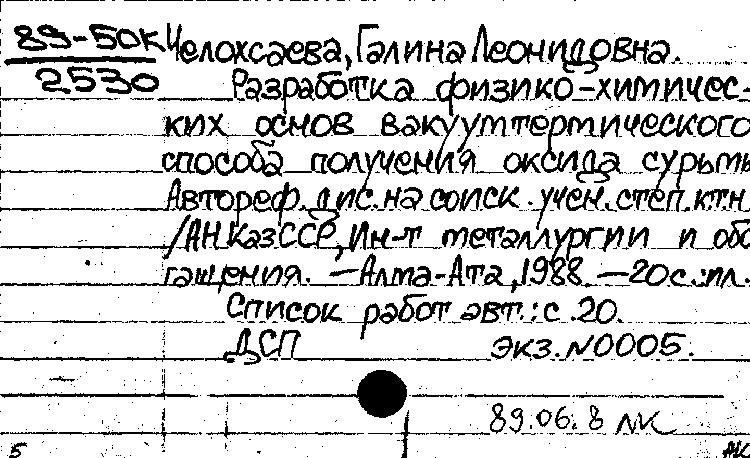 89-50К Челохсаева, Галина Леонидовна.
2530 Разработка физико-химичес-
ких основ вакуумтермического
способа получения оксида сурьмы
Автореф. дис. на соиск. учен. степ. ктн
/АН КазССР, Ин-т металлургии и обо
гащения. — Алма-Ата, 1988. — 20 с.: ил.
Список работ авт.: с. 20.
ДСП экз. N0005.
89.06.8
5